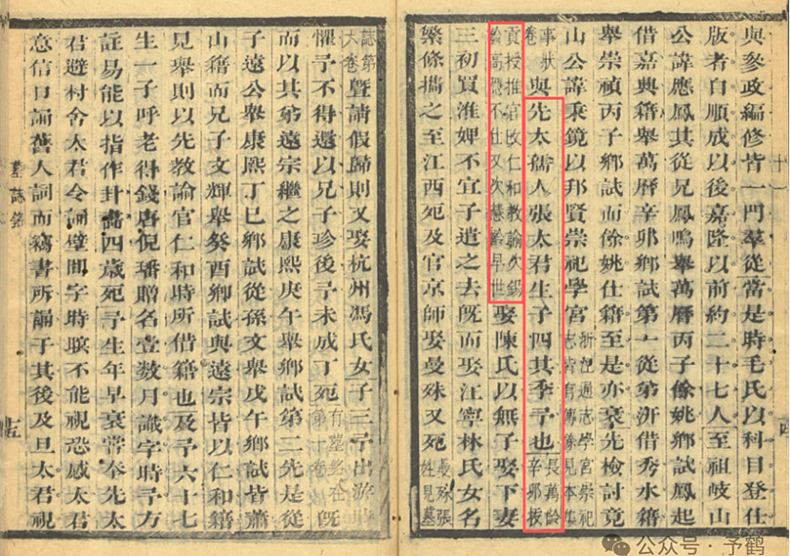 與參政編修皆一門羣從當是時毛氏以科目登仕
版者自順成以後嘉隆以前約二十七人至祖岐山
公諱應鳳其從兄鳳鳴舉萬曆丙子餘姚鄉試鳳起
借嘉興籍舉萬曆辛卯鄉試第一從第泝借秀水籍
舉崇禎丙子鄉試而餘姚仕籍至是亦衰先檢討竟
山公諱秉鏡以邦賢崇祀學官浙江通志學宮崇祀志皆有傳餘見本集
事狀卷與先太孺人張太君生子四其季予也長萬齡辛卯拔
貢授推官改仁和教諭次錫齡高隱不仕又次慧齡早世娶陳氏以無子娶下妻
三初買淮婢不宜子遣之去既而娶江寧林氏女名
欒條攜之至江西死及官京師娶曼殊又死曼殊張姓見墓
誌第六卷暨請假歸則又娶杭州馮氏女子三予出游時
懼予不得還以兄子珍後予未成丁死有墓銘在第十卷既
而以其第遠宗繼之康熙庚午舉鄉試第二先是從
子遠公舉康熙丁巳鄉試從孫文舉戊午鄉試皆蕭
山籍而兄子文輝舉癸酉鄉試與遠宗皆以仁和籍
見舉則以先教諭官仁和時所借籍也及予六十七
生一子呼老得錢唐倪璠贈名壹數月識字時予方
註易能以指作卦畵四歲死予生年早衰嘗奉先太
君避村舍太君令誦壁間字時瞑不能視恐慼太君
意信口誦舊人詞而竊書所誦于其後及旦太君視
墓誌銘
十一
公众号·予鹤